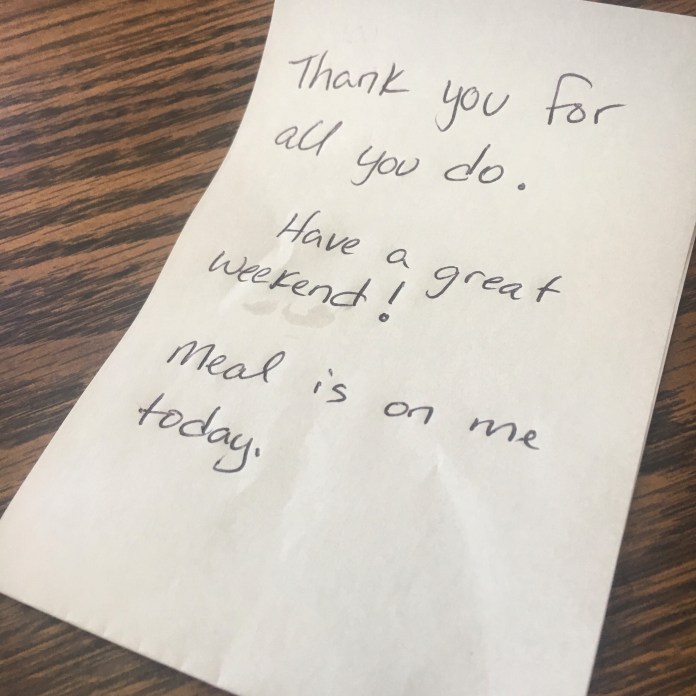 Thank you for
all you do.
Have a great
weekend!
Meal is on me
today.